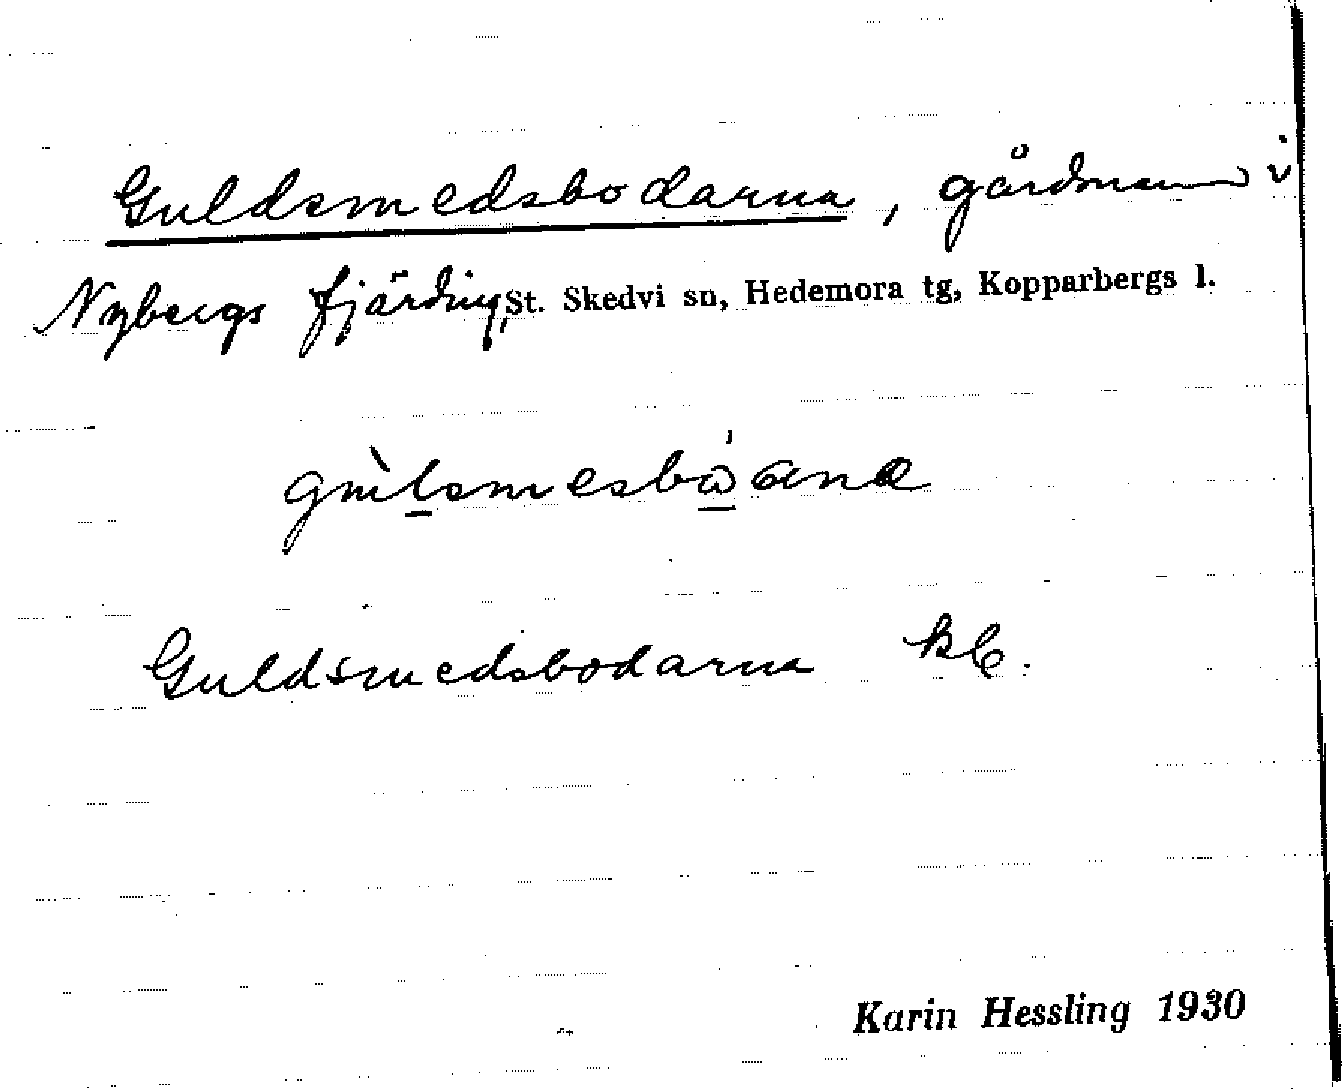 Guldsmedsbodarna, gårdnamn i
Nybergs fjärding, St. Skedvi sn, Hedemora tg, Kopparbergs l.
Guldsmedsbodarna kb.
Karin Hessling 1930